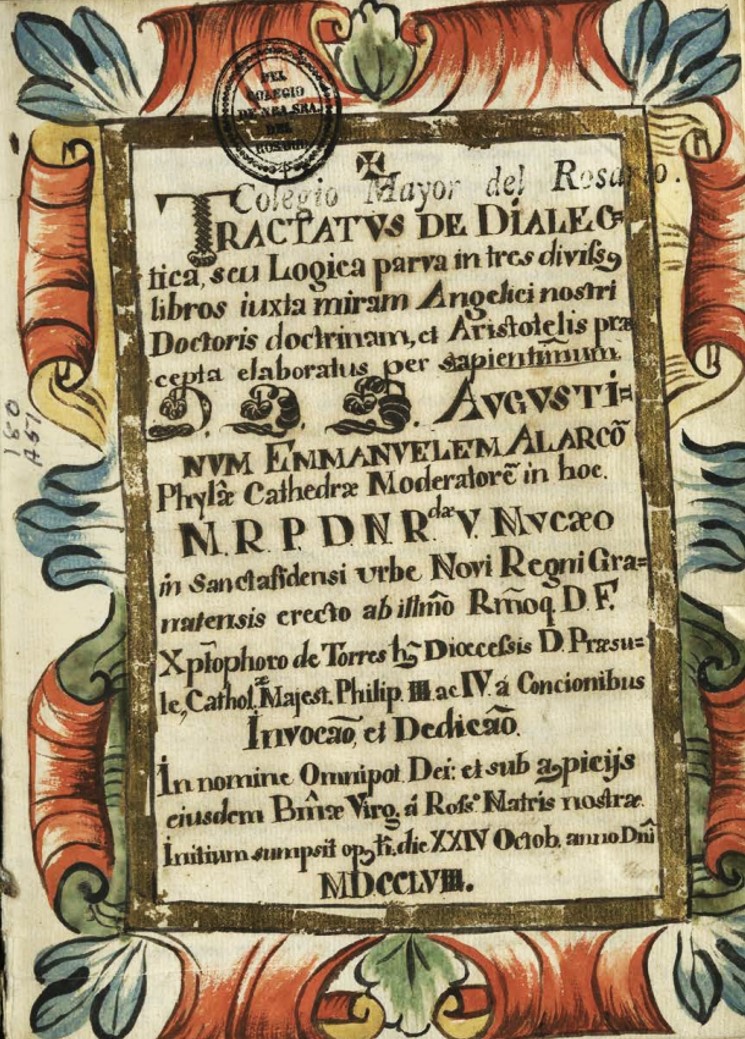 DEL
COLEGIO
DE NRA. SRA.
DEL
ROSARIO
Colegio Mayor del Rosario.
TRACTATVS DE DIALEC=
tica, seu Logica parva in tres divissꝰ
libros iuxta miram Angelici nostri
Doctoris doctrinam, et Aristotelis præ
cepta elaboratus per sapientim̃um
D. D. D. AVGVSTI=
NVM EMMANVELEM ALARCÕ
Phylæ̂ Cathedræ Moderatorẽ in hoc.
M. R. P. D. N. R.dæ V. Nvcæo
in Sanctafidensi vrbe Novi Regni Gra=
natensis erecto ab illm̃o Rm̃oq. D. F.
Xpt̃ophoro de Torres Diœcessis D. Præsu=
le, Cathol.æ Majest. Philip. III. ac IV. á Concionibus
Invocaõ, et Dedicaõ.
In nomine Omnipot. Dei: et sub aꝰpicijs
eiusdem Bm̃æ Virg. á Ross.º Matris nostræ.
Initium sumpsit die XXIV Octob. anno Dñi
MDCCLVIII.
180
A51